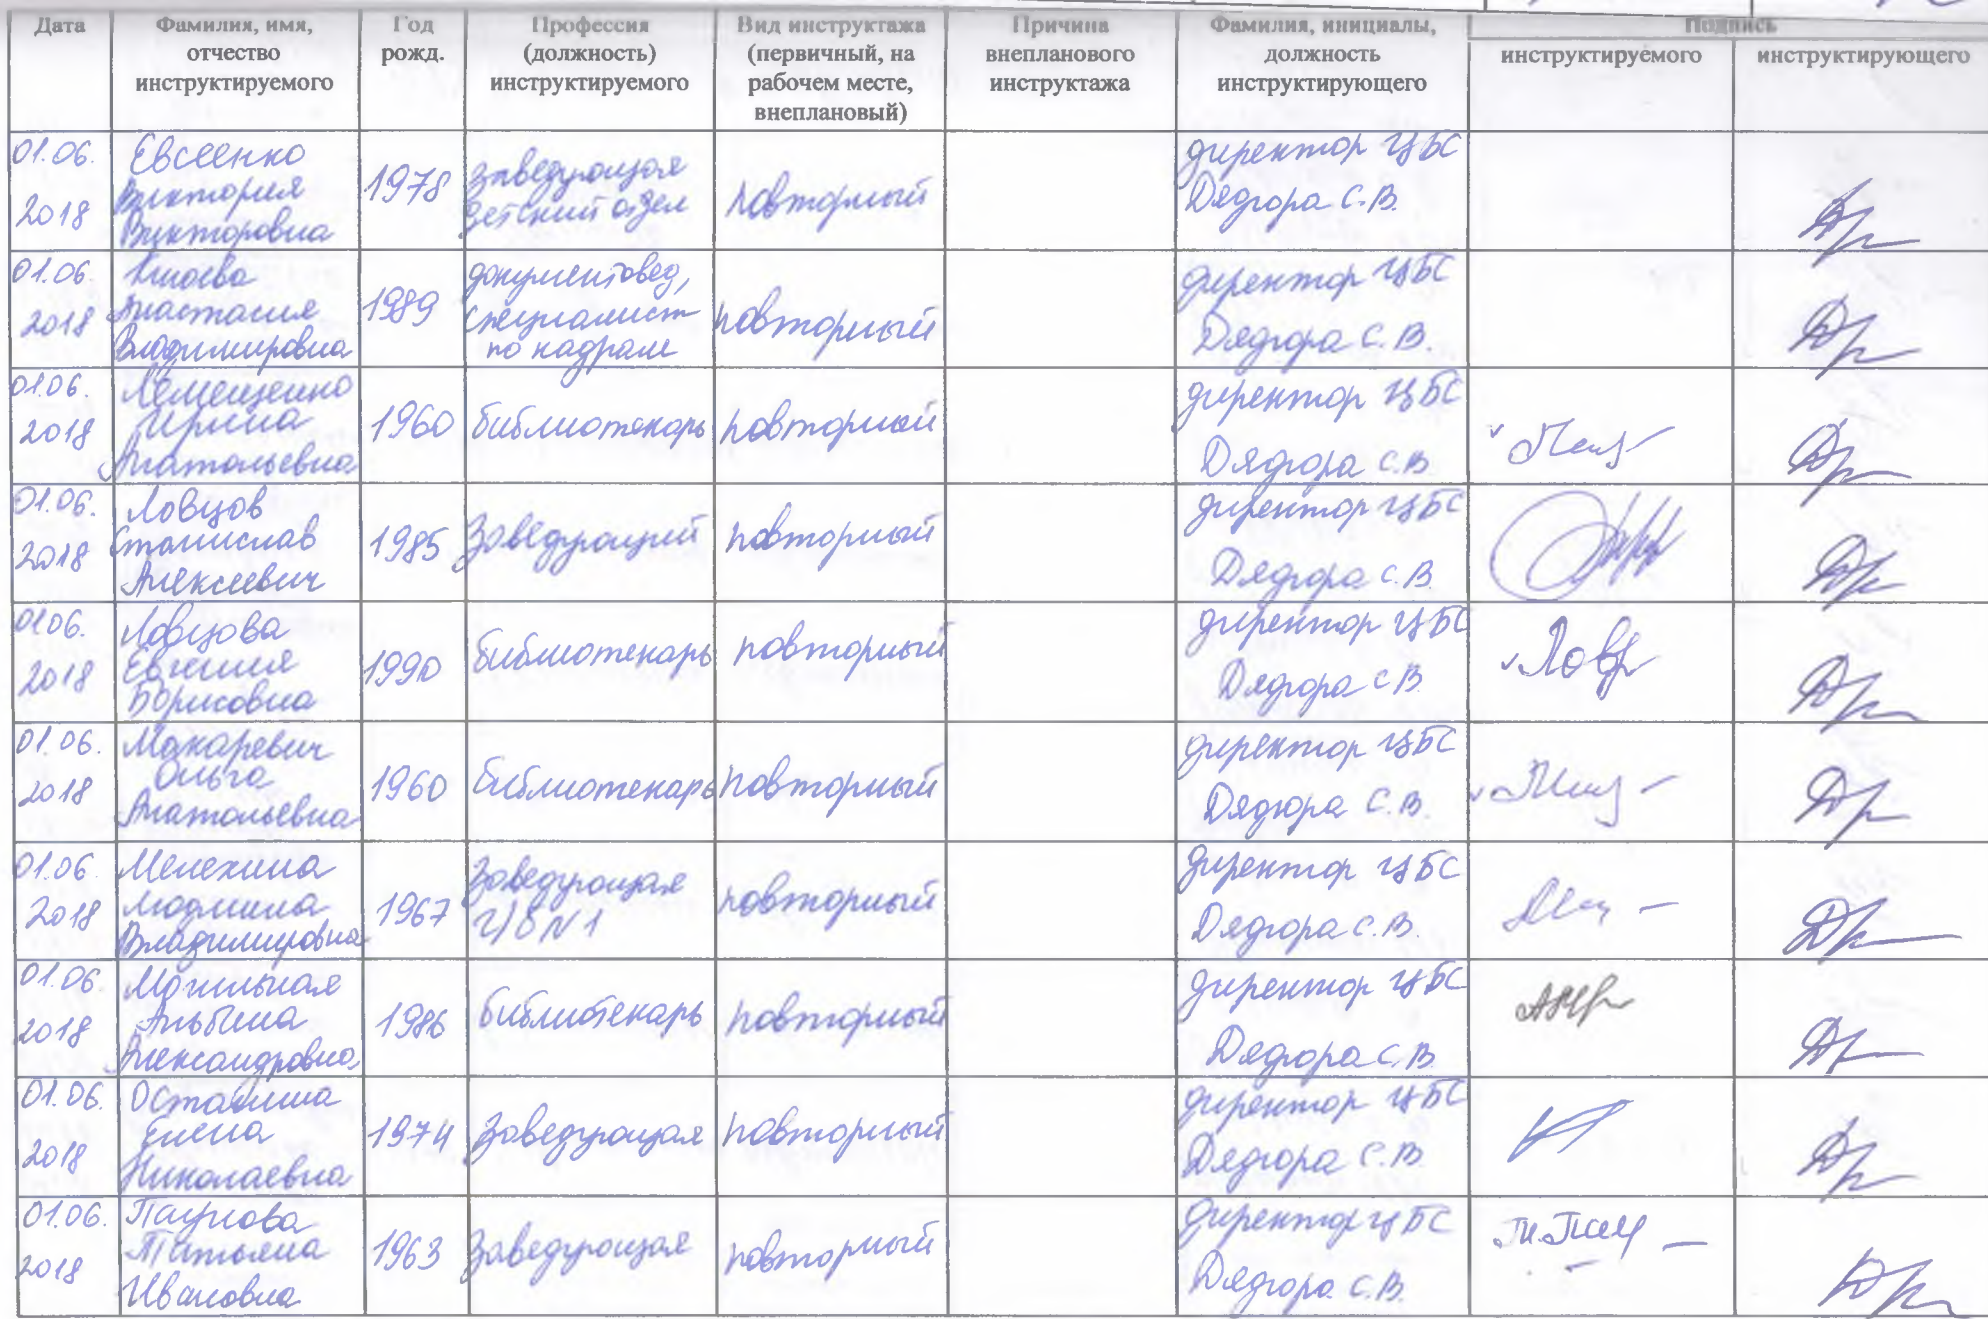 Дата
Фамилия, имя,
отчество
инструктируемого
Год
рожд.
Профессия
(должность)
инструктируемого
Вид инструктажа
(первичный, на
рабочем месте,
внеплановый)
Причина
внепланового
инструктажа
Фамилия, инициалы,
должность
инструктирующего
Подпись
инструктируемого
инструктирующего
01.06.
2018
Евсеенко
Виктория
Викторовна
1978
заведующая
детский отдел
повторный
директор ЦБС
Дядюра С.В.
01.06.
2018
Анастасия
Владимировна
1989
документовед,
специалист
по кадрам
повторный
директор ЦБС
Дядюра С.В.
01.06.
2018
Лемещенко
Ирина
Анатольевна
1960
библиотекарь
повторный
директор ЦБС
Дядюра С.В.
01.06.
2018
Ловцов
Станислав
Алексеевич
1985
Заведующий
повторный
директор ЦБС
Дядюра С.В.
01.06.
2018
Ловцова
Евгения
Борисовна
1990
библиотекарь
повторный
директор ЦБС
Дядюра С.В.
01.06.
2018
Макаревич
Ольга
Анатольевна
1960
библиотекарь
повторный
директор ЦБС
Дядюра С.В.
01.06.
2018
Мелехина
Людмила
Владимировна
1967
Заведующая
повторный
директор ЦБС
Дядюра С.В.
01.06.
2018
Могильная
Альбина
Александровна
1986
библиотекарь
повторный
директор ЦБС
Дядюра С.В.
01.06.
2018
Осташина
Елена
Николаевна
1974
Заведующая
повторный
директор ЦБС
Дядюра С.В.
01.06.
2018
Татьяна
Ивановна
1963
Заведующая
повторный
директор ЦБС
Дядюра С.В.